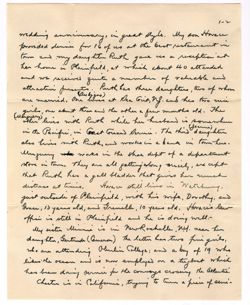 1-2
wedding anniversary, in great style. My son Horace
provided dinner for 16 of us at the best restaurant in
town and my daughter Ruth gave us a reception at
her home in Plainfield, at which about 40 attended
and we received quite a number of valuable and
attractive presents. Ruth has three daughters, two of whom
are married. One lives at and has two nice
girls, one about and the other a few months old. The
other lives with Ruth while her husband is somewhere
in the Pacific, in Guard Service. The third daughter
also lives with Ruth, and works in a bank in town.
works in the shoe dept of a department
store in town. They are all getting along nicely, except
that Ruth has a gall bladder that gives her much
distress at times. Horace still lives in Watchung,
just outside of Plainfield, with his wife, Dorothy, and
13 years old, and 10 years old. Horace's
office is still in Plainfield and he is doing well.
My sister Minnie is in N.H. near her
daughter, Gertrude The latter has two fine girls,
who are attending Oberlin College, and a boy of 19 who
likes the ocean and is now employed on a tugboat which
has been doing service for the convoys crossing the Atlantic
Chester is in California, trying to turn a piece of